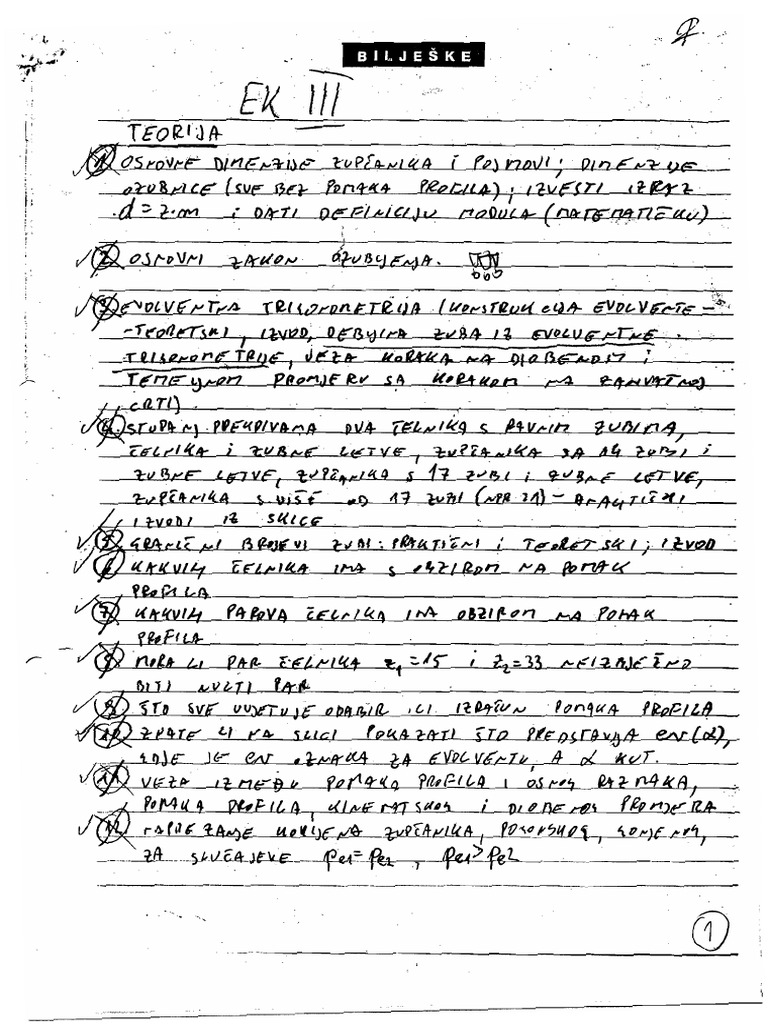 BILJEŠKE
EK III
TEORIJA
1. OSNOVNE DIMENZIJE ZUPČANIKA I POJMOVI; DIMENZIJE
OZUBNICE (SVE BEZ POMAKA PROFILA); IZVESTI IZRAZ
d=z·m I DATI DEFINICIJU MODULA (MATEMATIČKU)
2. OSNOVNI ZAKON OZUBLJENJA.
3. EVOLVENTNA TRIGONOMETRIJA (KONSTRUKCIJA EVOLVENTE-
-TEORETSKI, IZVOD, DEBLJINA ZUBA IZ EVOLVENTNE
TRIGONOMETRIJE, VEZA KORAKA NA DIOBENOM I
TEMELJNOM PROMJERU SA KORAKOM NA ZAHVATNOJ
CRTI).
4. STUPANJ PREKRIVANJA DVA ČELNIKA S RAVNIM ZUBIMA,
ČELNIKA I ZUBNE LETVE, ZUPČANIKA SA 14 ZUBI I
ZUBNE LETVE, ZUPČANIKA S 17 ZUBI I ZUBNE LETVE,
ZUPČANIKA S VIŠE OD 17 ZUBI (NPR 21) - ANALITIČKI
IZVODI IZ SKICE
5. GRANIČNI BROJEVI ZUBI: PRAKTIČNI I TEORETSKI; IZVOD
6. KAKVIH ČELNIKA IMA S OBZIROM NA POMAK
PROFILA
7. KAKVIH PAROVA ČELNIKA IMA OBZIROM NA POMAK
PROFILA
8. MORA LI PAR ČELNIKA z₁=15 I z₂=33 NEIZBJEŽNO
BITI NULTI PAR
9. ŠTO SVE UVJETUJE ODABIR ILI IZRAČUN POMAKA PROFILA
10. ZNATE LI NA SLICI POKAZATI ŠTO PREDSTAVLJA ev(α),
GDJE JE ev OZNAKA ZA EVOLVENTU, A α KUT.
11. VEZA IZMEĐU POMAKA PROFILA I OSNOG RAZMAKA,
POMAKA PROFILA, KINEMATSKOG I DIOBENOG PROMJERA
12. NAPREZANJE KORIJENA ZUPČANIKA, POGONSKOG, GONJENOG,
ZA SLUČAJEVE pe1=pe2, pe1>pe2
1